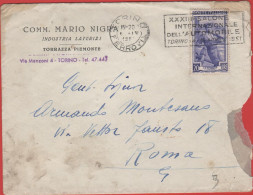 COMM. MARIO NIGRA
INDUSTRIA LATERIZI
TORRAZZA PIEMONTE
Via Manzoni - TORINO - Tel. 47.443
TORINO
FERROVIA
SALONE
INTERNAZIONALE
DELL'AUTOMOBILE
TORINO
Gent. Signor
Armando Montesano
Via Vittor Fausto 18
Roma